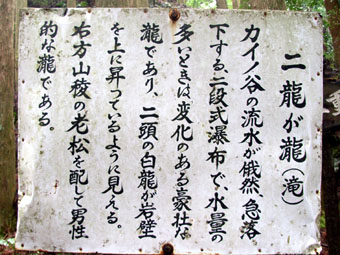 二龍が瀧（滝）
カイノ谷の流水が俄然、急落
下する、二段式瀑布で、水量の
多いときは変化のある豪壮な
瀧であり、二頭の白龍が岩壁
を上に昇っているように見える。
右方山稜の老松を配して男性
的な瀧である。